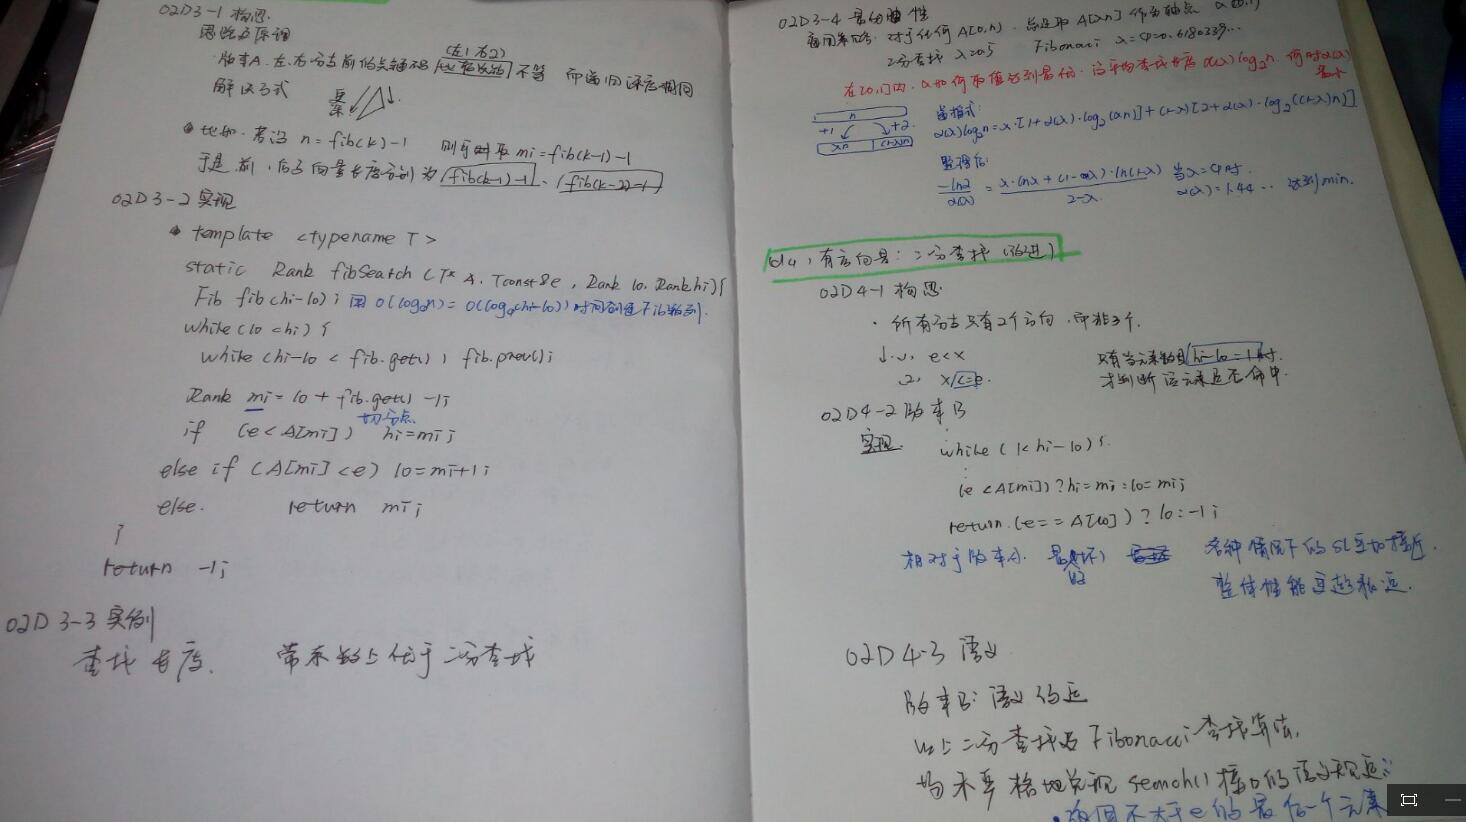 02D3-1 构思.
思路与原理
版本A.左、右分支前的关键码 比较次数 不等 而递归深度相同
(左1 右2)
解决方式
· 比如.若设 n = fib(k)-1 则可取 mi = fib(k-1)-1
于是.前,后子向量长度分别为 fib(k-1)-1、fib(k-2)-1
02D3-2 实现
· template <typename T>
static Rank fibSearch (T* A, T const& e, Rank lo, Rank hi){
Fib fib(hi-lo); 用 O(logφn) = O(logφ(hi-lo)) 时间创建Fib数列.
while(lo<hi){
while(hi-lo < fib.get()) fib.prev();
Rank mi = lo + fib.get() -1;
切分点
if (e<A[mi]) hi=mi;
else if (A[mi]<e) lo=mi+1;
else. return mi;
}
return -1;
02D3-3 实例
查找长度. 常系数上优于二分查找
02D3-4 最优性
通用策略:对于任何A[0,n).总选取A[λn]作为轴点
二分查找 λ=0.5 Fibonacci λ=φ=0.6180339...
在[0,1)内,λ如何取值达到最优.设平均查找长度α(λ)log₂n.何时α(λ)最小
n
+1 +2
λn (1-λ)n
递推式:
α(λ)log₂n = λ·[1+α(λ)·log₂(λn)] + (1-λ)[2+α(λ)·log₂((1-λ)n)]
整理后:
-ln2/α(λ) = λ·lnλ+(1-λ)·ln(1-λ) / 2-λ 当λ=φ时.
α(λ)=1.44... 达到min.
d4,有序向量:二分查找(改进)
02D4-1 构思.
· 所有分支只有2个方向.而非3个.
1), e<x
2), x<=e. 只有当元素数目hi-lo=1时.
才判断该元素是否命中.
02D4-2 版本B
实现. while (1<hi-lo){
(e<A[mi])?hi=mi:lo=mi;
return (e==A[lo])?lo:-1;
相对于版本A. 最好(坏) 各种情况下的SL更加接近.
整体性能更趋稳定.
02D4-3 语义
版本B:语义约定
以上二分查找及Fibonacci查找算法.
均未严格地兑现search()接口的语义规定:
·返回不大于e的最后一个元素